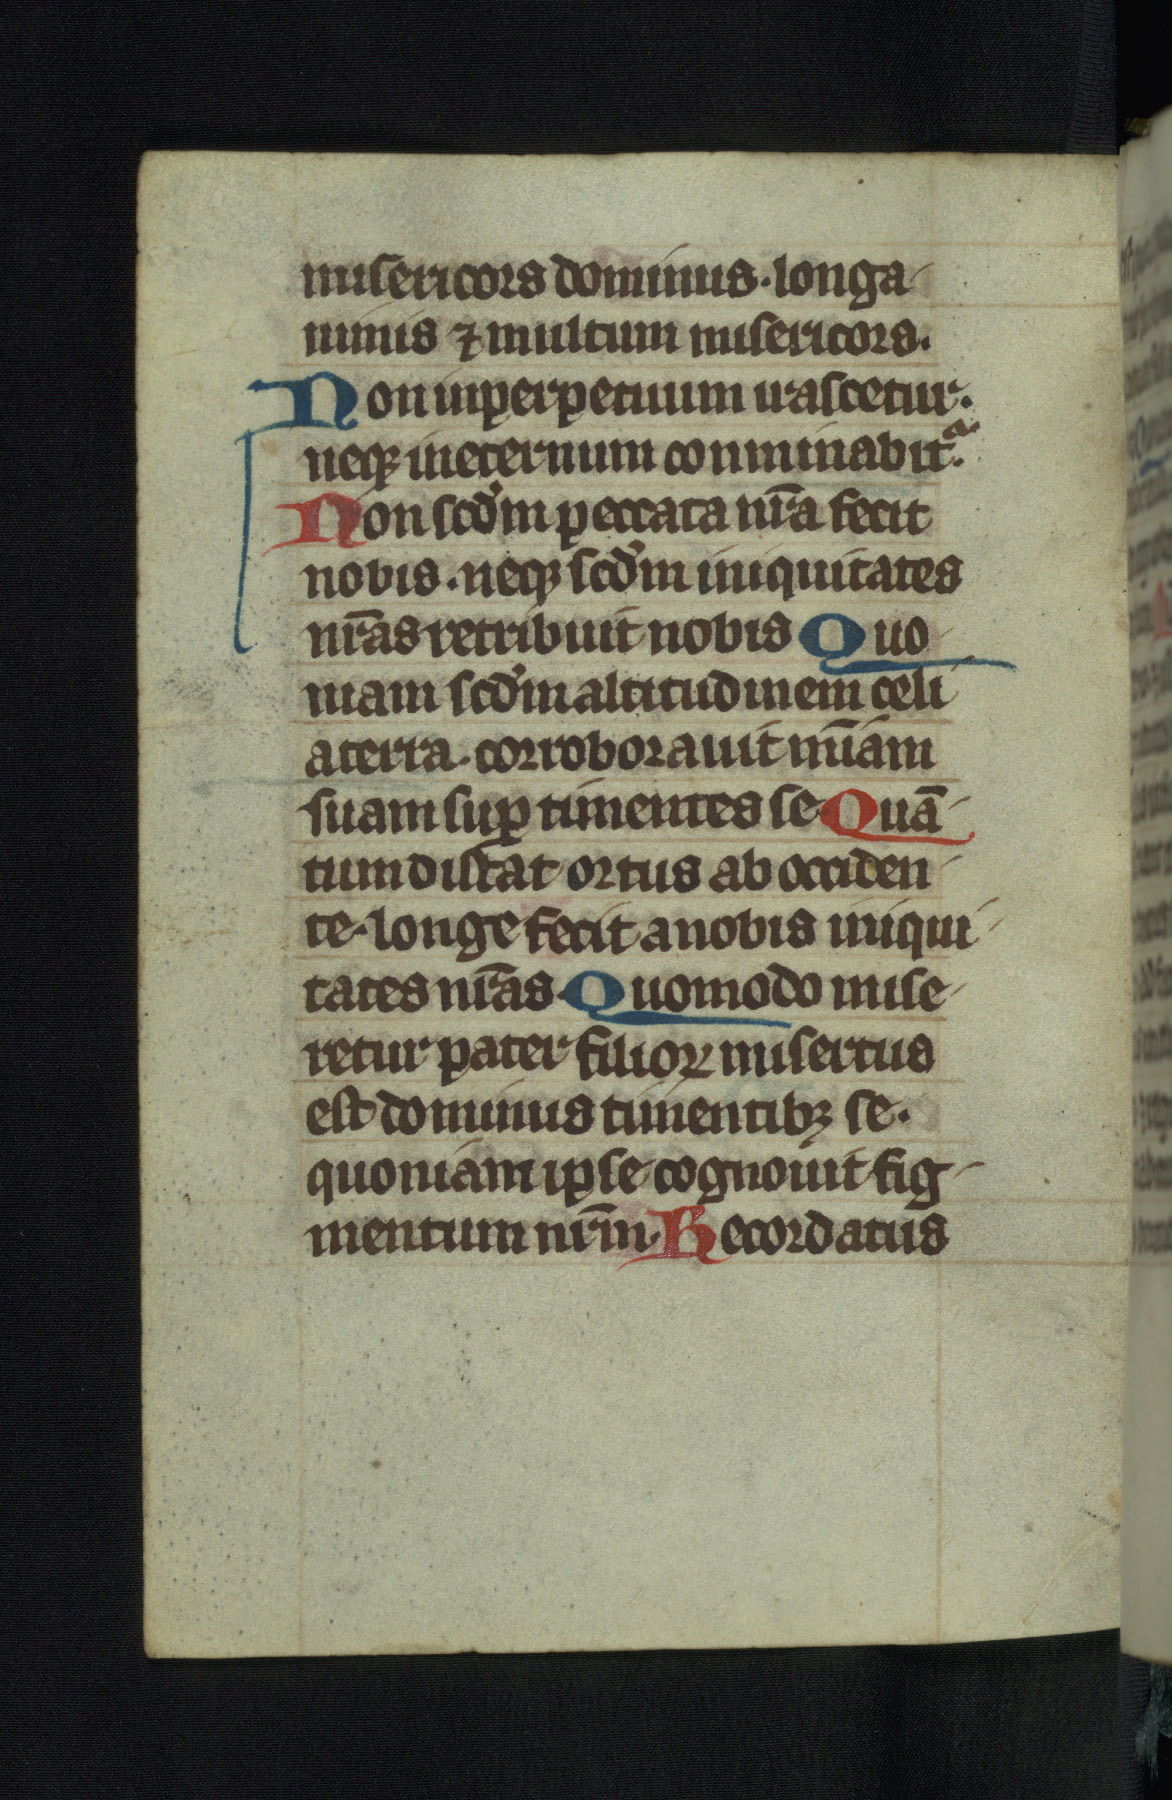 misericors dominus. longa-
nimis ⁊ multum misericors.
Non inperpetuum irascetur.
neqꝫ ineternum conminabitᷣ.
Non scd̓m peccata nr̄a fecit
nobis. neqꝫ scd̓m iniquitates
nr̄as retribuit nobis Quo-
niam scd̓m altitudinem celi
aterra. corroborauit mīam
suam suꝑ timentes se Quā-
tum distat ortus ab occiden-
te. longe fecit anobis iniqui-
tates nr̄as. Quomodo mise-
retur pater filioꝝ misertus
est dominus timentibꝫ se.
quoniam ipse cognouit fig-
mentum nr̄m. Recordatus